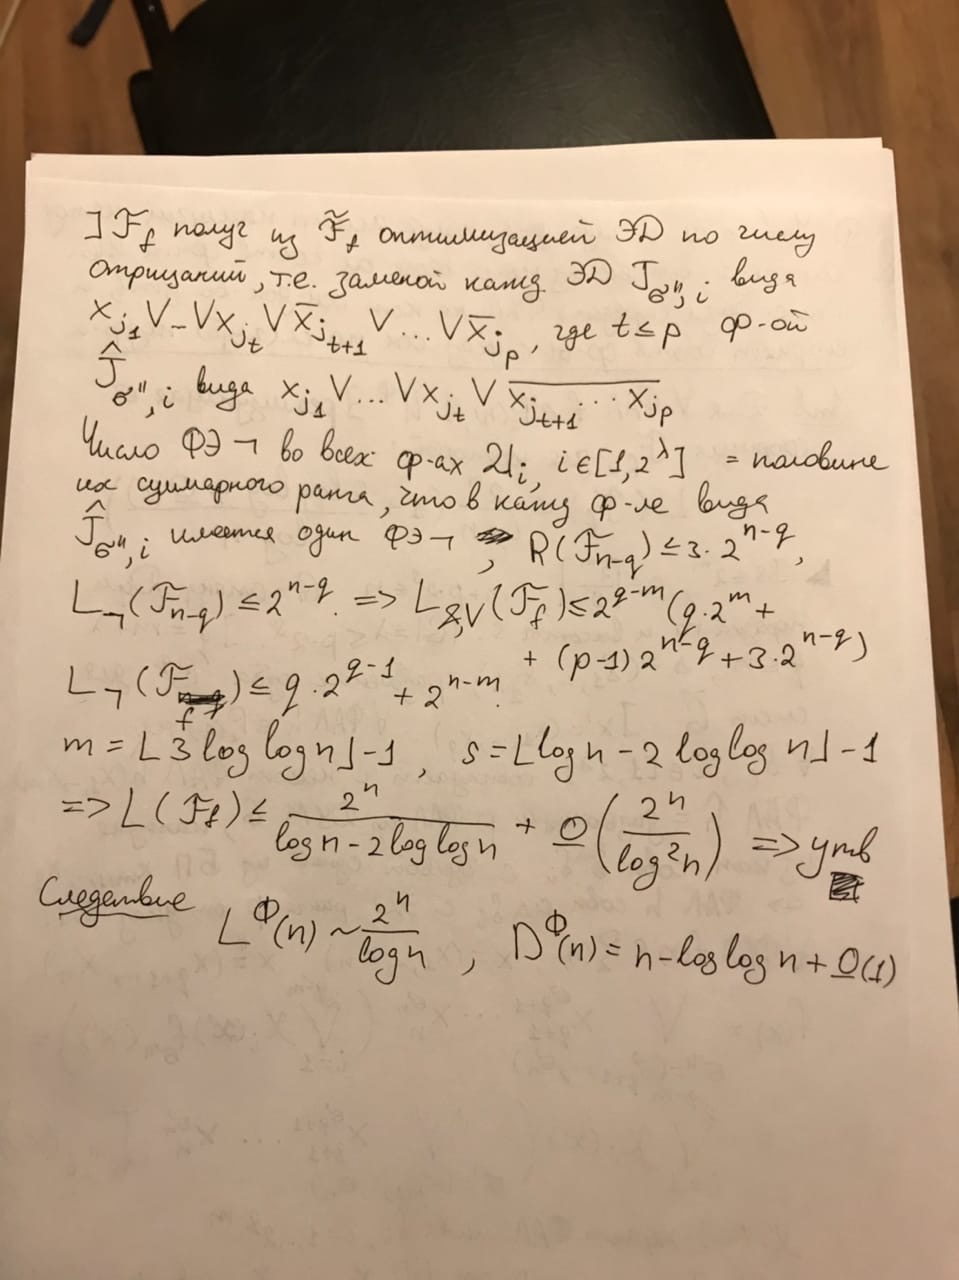 ] ℱ_f получ из ℱ̃_f оптимизацией ЭД по числу
отрицаний, т.е. заменой кажд ЭД J_{σ'',i} вида
x_{j_1} ∨ … ∨ x_{j_t} ∨ x̄_{j_{t+1}} ∨ … ∨ x̄_{j_p}, где t ≤ p ф-ой
Ĵ_{σ'',i} вида x_{j_1} ∨ … ∨ x_{j_t} ∨ \overline{x_{j_{t+1}} … x_{j_p}}
Число ФЭ ¬ во всех ф-ах 𝔄_i, i∈[1,2^λ] = половине
их суммарного ранга, что в кажд ф-ле вида
Ĵ_{σ'',i} имеется один ФЭ ¬, R(ℱ_{n-q}) ≤ 3·2^{n-q},
L_¬(ℱ_{n-q}) ≤ 2^{n-q}. => L_{&,∨}(ℱ_f) ≤ 2^{q-m}(q·2^m +
+ (p-1)2^{n-q} + 3·2^{n-q})
L_¬(ℱ_f) ≤ q·2^{q-1} + 2^{n-m}.
m = ⌊3 log log n⌋ - 1, s = ⌊log n - 2 log log n⌋ - 1
=> L(ℱ_f) ≤ \frac{2^n}{log n - 2 log log n} + O(\frac{2^n}{log^2 n}) => утв
Следствие L^Ф(n) ~ \frac{2^n}{log n}, D^Ф(n) = n - log log n + O(1)